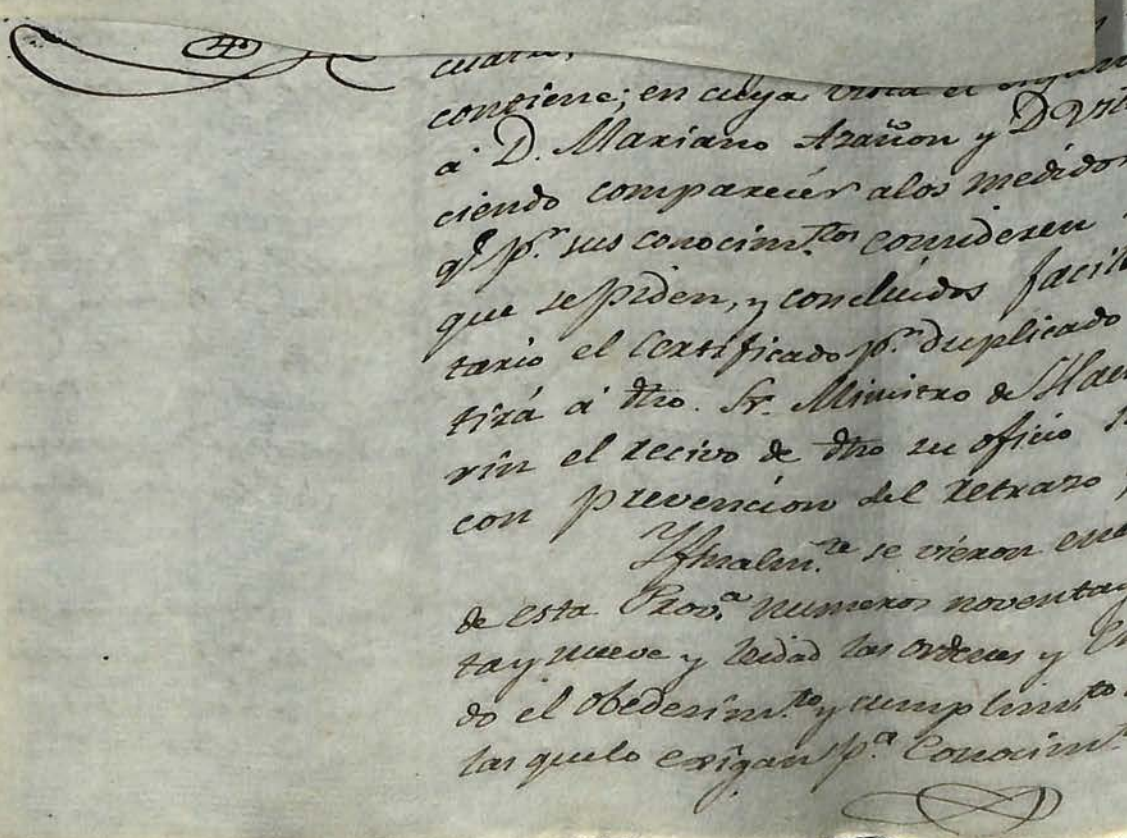 cuatro,
contiene; en cuya vista el
á D. Mariano Arañon y D
ciendo comparecér alos medidor
qe. pr. sus conocimtos. consideren
que se piden, y concluidos facili
tario el Certificado pr. duplicado
tirá á dho. Sr. Ministro de Hac
rin el recivo de dho su oficio
con prevencion del retraso
Yfinalmte. se vieron en
de esta Prova. numeros noventay
tay nueve y leidas las ordenes y
do el obedecimto. y cumplimto
las quelo exigan pa. Conocimt